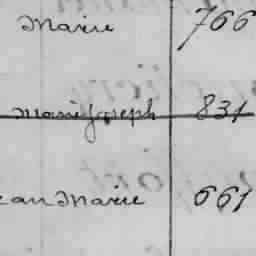 Marie 766
Marie Joseph 831
ean Marie 661